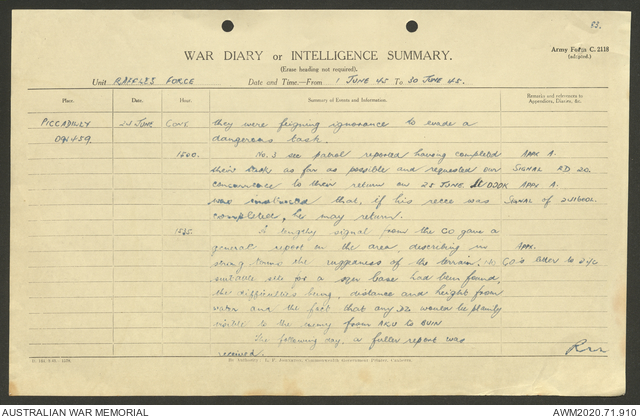 53.
Army Form C. 2118
(adapted.)
WAR DIARY or INTELLIGENCE SUMMARY.
(Erase heading not required).
Unit RAFFLES FORCE Date and Time—From 1 JUNE 45 To 30 JUNE 45.
Place. Date. Hour. Summary of Events and Information. Remarks and references to Appendices, Diaries, &c.
PICCADILLY 24 JUNE CONT they were feigning ignorance to evade a
dangerous task.
1500. No. 3 sec patrol reported having completed APPX A.
their task as far as possible and requested our SIGNAL RD 20.
concurrence to their return on 25 JUNE. APPX A.
was instructed that, if his recce was SIGNAL of 241600K.
completed, he may return.
A lengthy signal from the CO gave a
general report on the area, describing in APPX.
strong terms the ruggedness of the terrain; no CO's letter to 2i/c
suitable site for a base had been found,
the difficulties being, distance and height from
water and the fact that any DZs would be plainly
visible to the enemy from AKU to BUIN
The following day, a fuller report was
received.
AUSTRALIAN WAR MEMORIAL
AWM2020.71.910